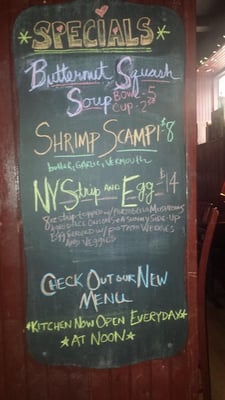 *SPECIALS*
Butternut Squash
Soup Bowl-5
Cup-2
SHRIMP SCAMPI $8
butter, GARLIC, VERMOUTH
NY Strip AND Egg $14
8oz strip topped w/ PORTOBELLO MUSHROOMS
ONIONS & A SUNNY SIDE-UP
Egg SERVED w/ POTATO WEDGES
AND VEGGIES
CHECK OUT OUR NEW
MENU
*KITCHEN NOW OPEN EVERYDAY*
*AT NOON*